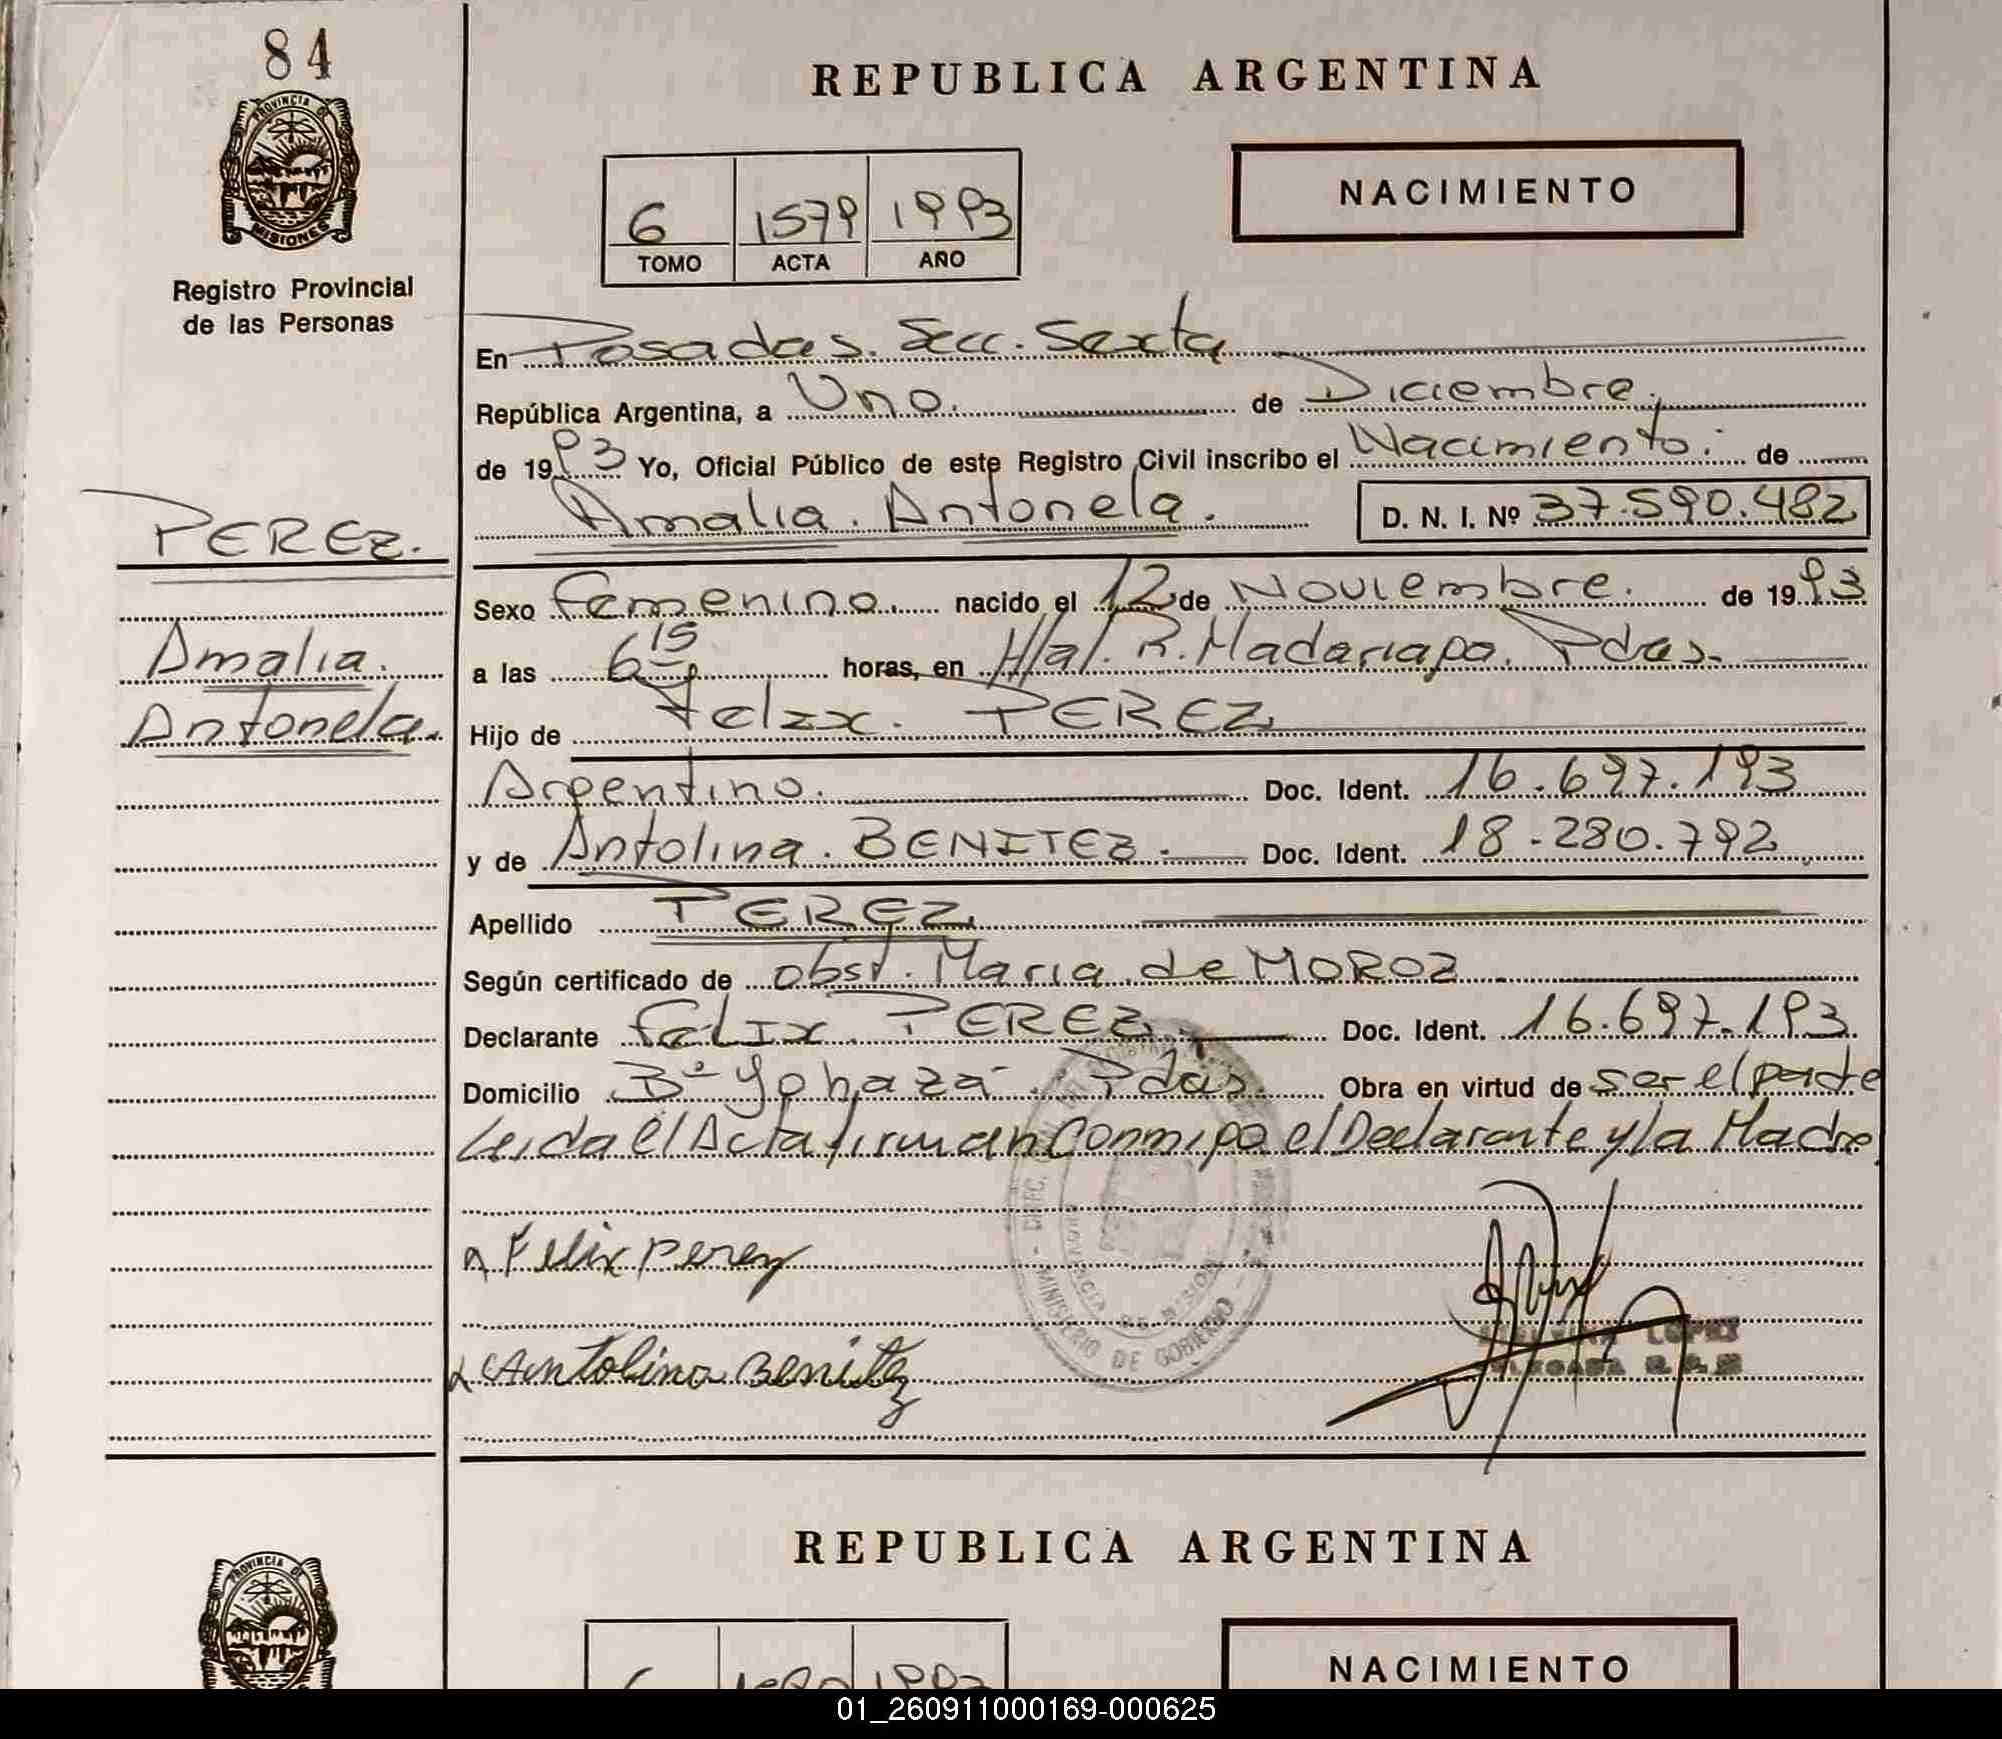 84
PROVINCIA DE
MISIONES
Registro Provincial
de las Personas
REPUBLICA ARGENTINA
NACIMIENTO
6 1579 1993
TOMO ACTA AÑO
En Posadas. Secc. Sexta
República Argentina, a Uno. de Diciembre.
de 1993 Yo, Oficial Público de este Registro Civil inscribo el Nacimiento. de
Amalia. Antonela. D. N. I. Nº 37.590.482
PEREZ.
Amalia.
Antonela.
Sexo femenino. nacido el 12 de Noviembre. de 1993
a las 6 15 horas, en H/al. R. Madariaga. Pdas.
Hijo de Felix. PEREZ
Argentino. Doc. Ident. 16.697.193
y de Antolina. BENITEZ. Doc. Ident. 18.280.792
Apellido PEREZ
Según certificado de obst. Maria de MOROZ
Declarante Felix PEREZ. Doc. Ident. 16.697.193.
Domicilio Bº Yohazá. Pdas. Obra en virtud de ser el padre
Leida el Acta firman Conmigo el Declarante y la Madre
Felix Perez
Antolina Benitez
MINISTERIO DE GOBIERNO
PROVINCIA DE MISIONES
LOPEZ
REPUBLICA ARGENTINA
PROVINCIA DE
NACIMIENTO
01_260911000169-000625